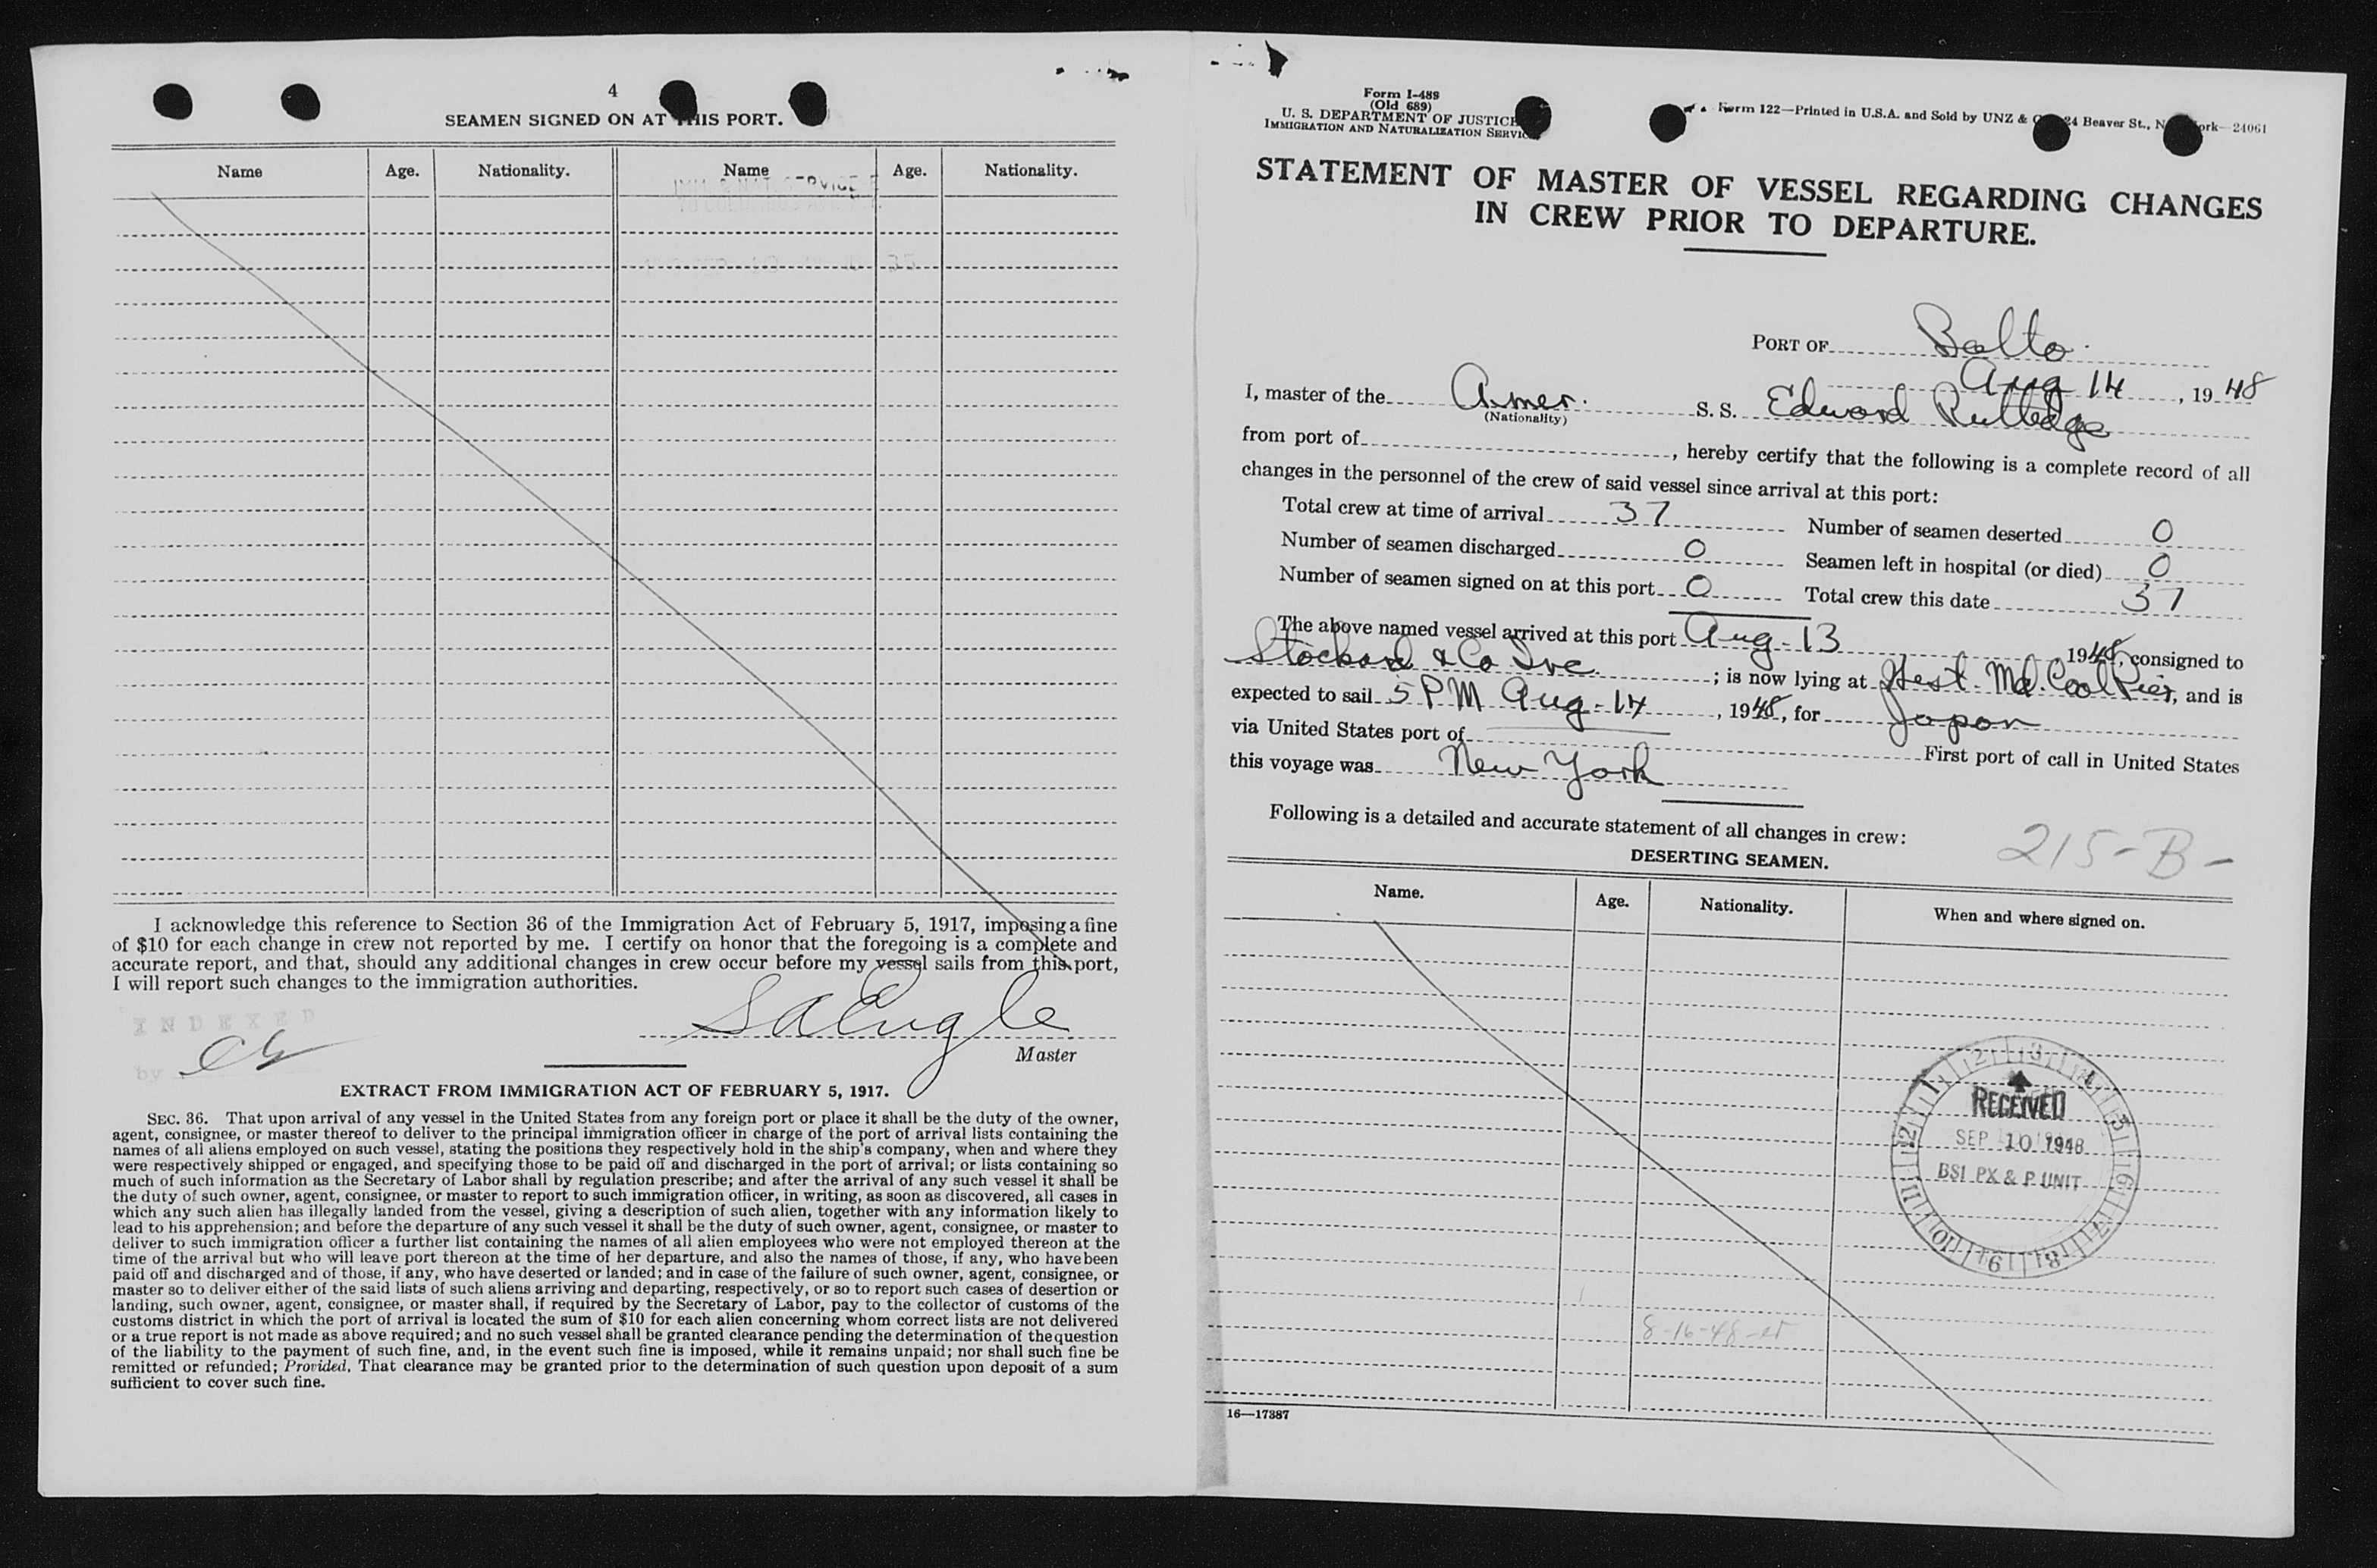 4
SEAMEN SIGNED ON AT THIS PORT.
Name Age. Nationality. Name Age. Nationality.
I acknowledge this reference to Section 36 of the Immigration Act of February 5, 1917, imposing a fine
of $10 for each change in crew not reported by me. I certify on honor that the foregoing is a complete and
accurate report, and that, should any additional changes in crew occur before my vessel sails from this port,
I will report such changes to the immigration authorities.
INDEXED
by
SAEngle
Master
EXTRACT FROM IMMIGRATION ACT OF FEBRUARY 5, 1917.
SEC. 36. That upon arrival of any vessel in the United States from any foreign port or place it shall be the duty of the owner,
agent, consignee, or master thereof to deliver to the principal immigration officer in charge of the port of arrival lists containing the
names of all aliens employed on such vessel, stating the positions they respectively hold in the ship's company, when and where they
were respectively shipped or engaged, and specifying those to be paid off and discharged in the port of arrival; or lists containing so
much of such information as the Secretary of Labor shall by regulation prescribe; and after the arrival of any such vessel it shall be
the duty of such owner, agent, consignee, or master to report to such immigration officer, in writing, as soon as discovered, all cases in
which any such alien has illegally landed from the vessel, giving a description of such alien, together with any information likely to
lead to his apprehension; and before the departure of any such vessel it shall be the duty of such owner, agent, consignee, or master to
deliver to such immigration officer a further list containing the names of all alien employees who were not employed thereon at the
time of the arrival but who will leave port thereon at the time of her departure, and also the names of those, if any, who have been
paid off and discharged and of those, if any, who have deserted or landed; and in case of the failure of such owner, agent, consignee, or
master so to deliver either of the said lists of such aliens arriving and departing, respectively, or so to report such cases of desertion or
landing, such owner, agent, consignee, or master shall, if required by the Secretary of Labor, pay to the collector of customs of the
customs district in which the port of arrival is located the sum of $10 for each alien concerning whom correct lists are not delivered
or a true report is not made as above required; and no such vessel shall be granted clearance pending the determination of the question
of the liability to the payment of such fine, and, in the event such fine is imposed, while it remains unpaid; nor shall such fine be
remitted or refunded; Provided, That clearance may be granted prior to the determination of such question upon deposit of a sum
sufficient to cover such fine.
Form I-489
(Old 689)
U. S. DEPARTMENT OF JUSTICE
IMMIGRATION AND NATURALIZATION SERVICE
Form 122—Printed in U.S.A. and Sold by UNZ & Co., 24 Beaver St., New York—24061
STATEMENT OF MASTER OF VESSEL REGARDING CHANGES
IN CREW PRIOR TO DEPARTURE.
PORT OF Balto.
Aug 14, 1948
I, master of the Amer. S. S. Edward Rutledge
(Nationality)
from port of , hereby certify that the following is a complete record of all
changes in the personnel of the crew of said vessel since arrival at this port:
Total crew at time of arrival 37 Number of seamen deserted 0
Number of seamen discharged 0 Seamen left in hospital (or died) 0
Number of seamen signed on at this port 0 Total crew this date 37
The above named vessel arrived at this port Aug-13 1948, consigned to
Stockard & Co Inc. ; is now lying at West. Md. Coal Pier, and is
expected to sail 5 PM Aug-14, 1948, for Japan
via United States port of First port of call in United States
this voyage was New York
Following is a detailed and accurate statement of all changes in crew:
215-B-
DESERTING SEAMEN.
Name. Age. Nationality. When and where signed on.
RECEIVED
SEP 10 1948
BSI PX & P. UNIT
1 2 3 4 5 6 7 8 9 10 11 12
8-16-48-
16—17387